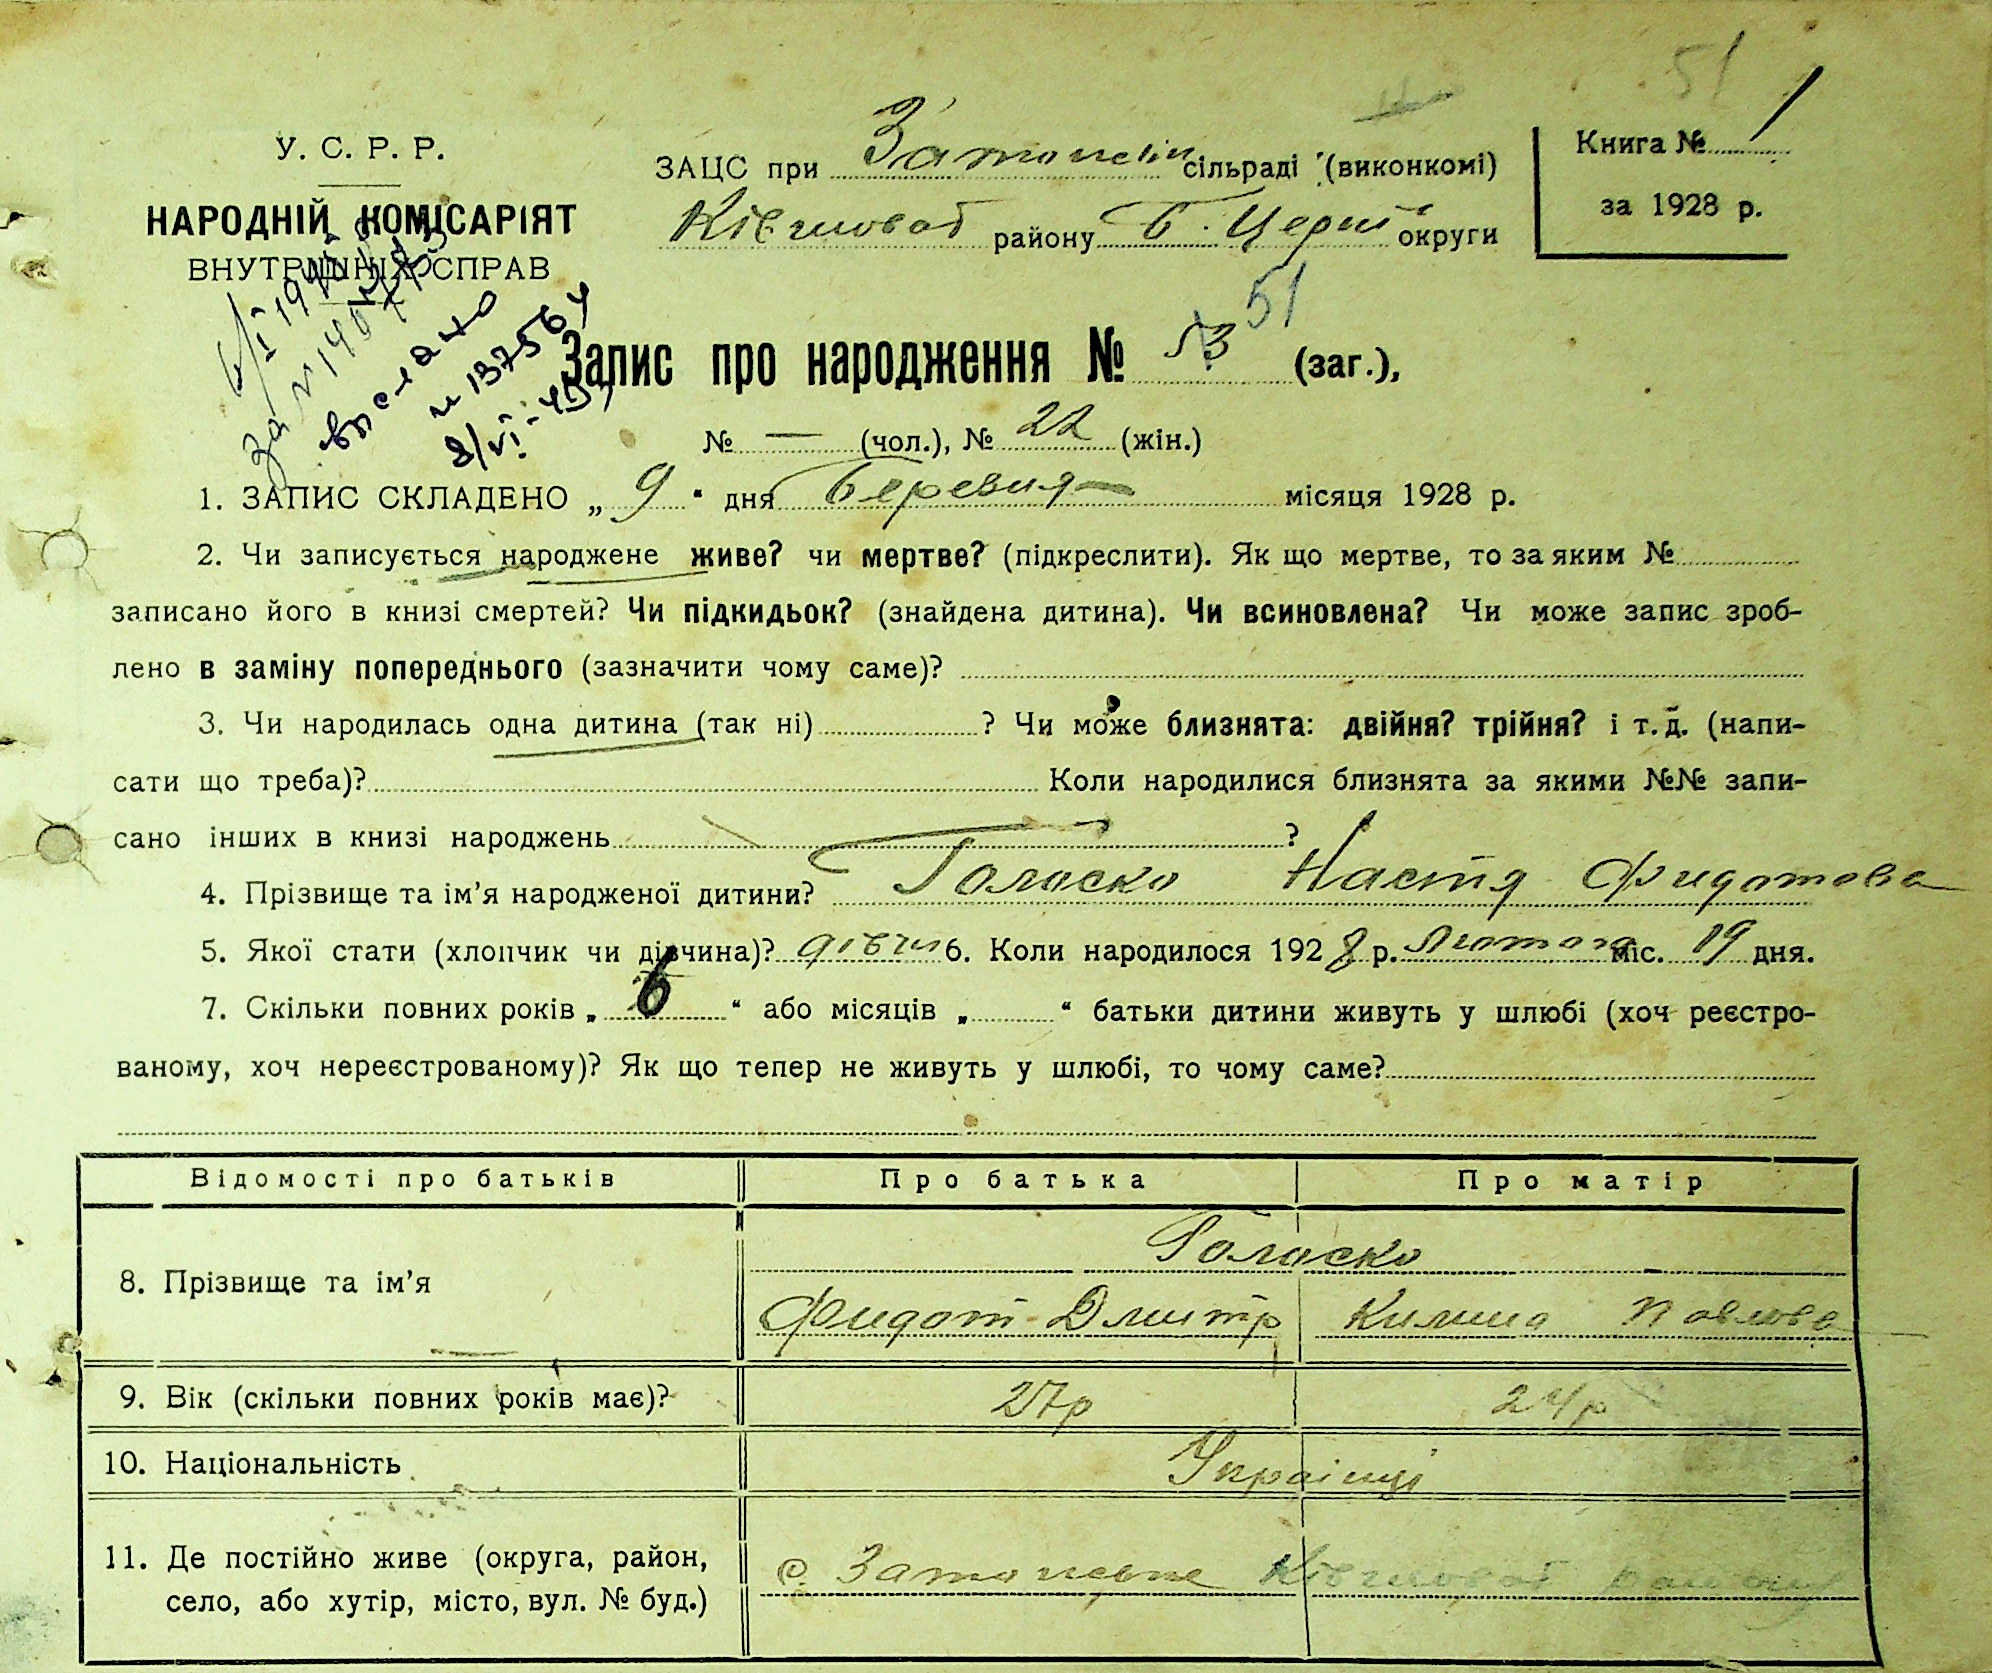 51
У. С. Р. Р.
НАРОДНІЙ КОМІСАРІЯТ
ВНУТРІШНІХ СПРАВ
ЗАЦС при сільраді (виконкомі)
Ківшоват району Б. Церк округи
Книга № 1
за 1928 р.
выслано
№ 137564
8/VI-45
Запис про народження № 53 51 (заг.),
№ — (чол.), № 22 (жін.)
1. ЗАПИС СКЛАДЕНО „ 9 “ дня березня місяця 1928 р.
2. Чи записується народжене живе? чи мертве? (підкреслити). Як що мертве, то за яким №
записано його в книзі смертей? Чи підкидьок? (знайдена дитина). Чи всиновлена? Чи може запис зроб-
лено в заміну попереднього (зазначити чому саме)?
3. Чи народилась одна дитина (так ні) ? Чи може близнята: двійня? трійня? і т. д. (напи-
сати що треба)? Коли народилися близнята за якими №№ запи-
сано інших в книзі народжень ?
4. Прізвище та ім'я народженої дитини? Голоско Настя Фидотова
5. Якої стати (хлопчик чи дівчина)? дівчи 6. Коли народилося 1928 р. Лютого міс. 19 дня.
7. Скільки повних років „ 6 “ або місяців „ “ батьки дитини живуть у шлюбі (хоч реєстро-
ваному, хоч нереєстрованому)? Як що тепер не живуть у шлюбі, то чому саме?
Відомості про батьків Про батька Про матір
8. Прізвище та ім'я Голоско
Фидот Дмитр Килина Павлова
9. Вік (скільки повних років має)? 27р 24р
10. Національність Українці
11. Де постійно живе (округа, район,
село, або хутір, місто, вул. № буд.)
с. Ківшоват району